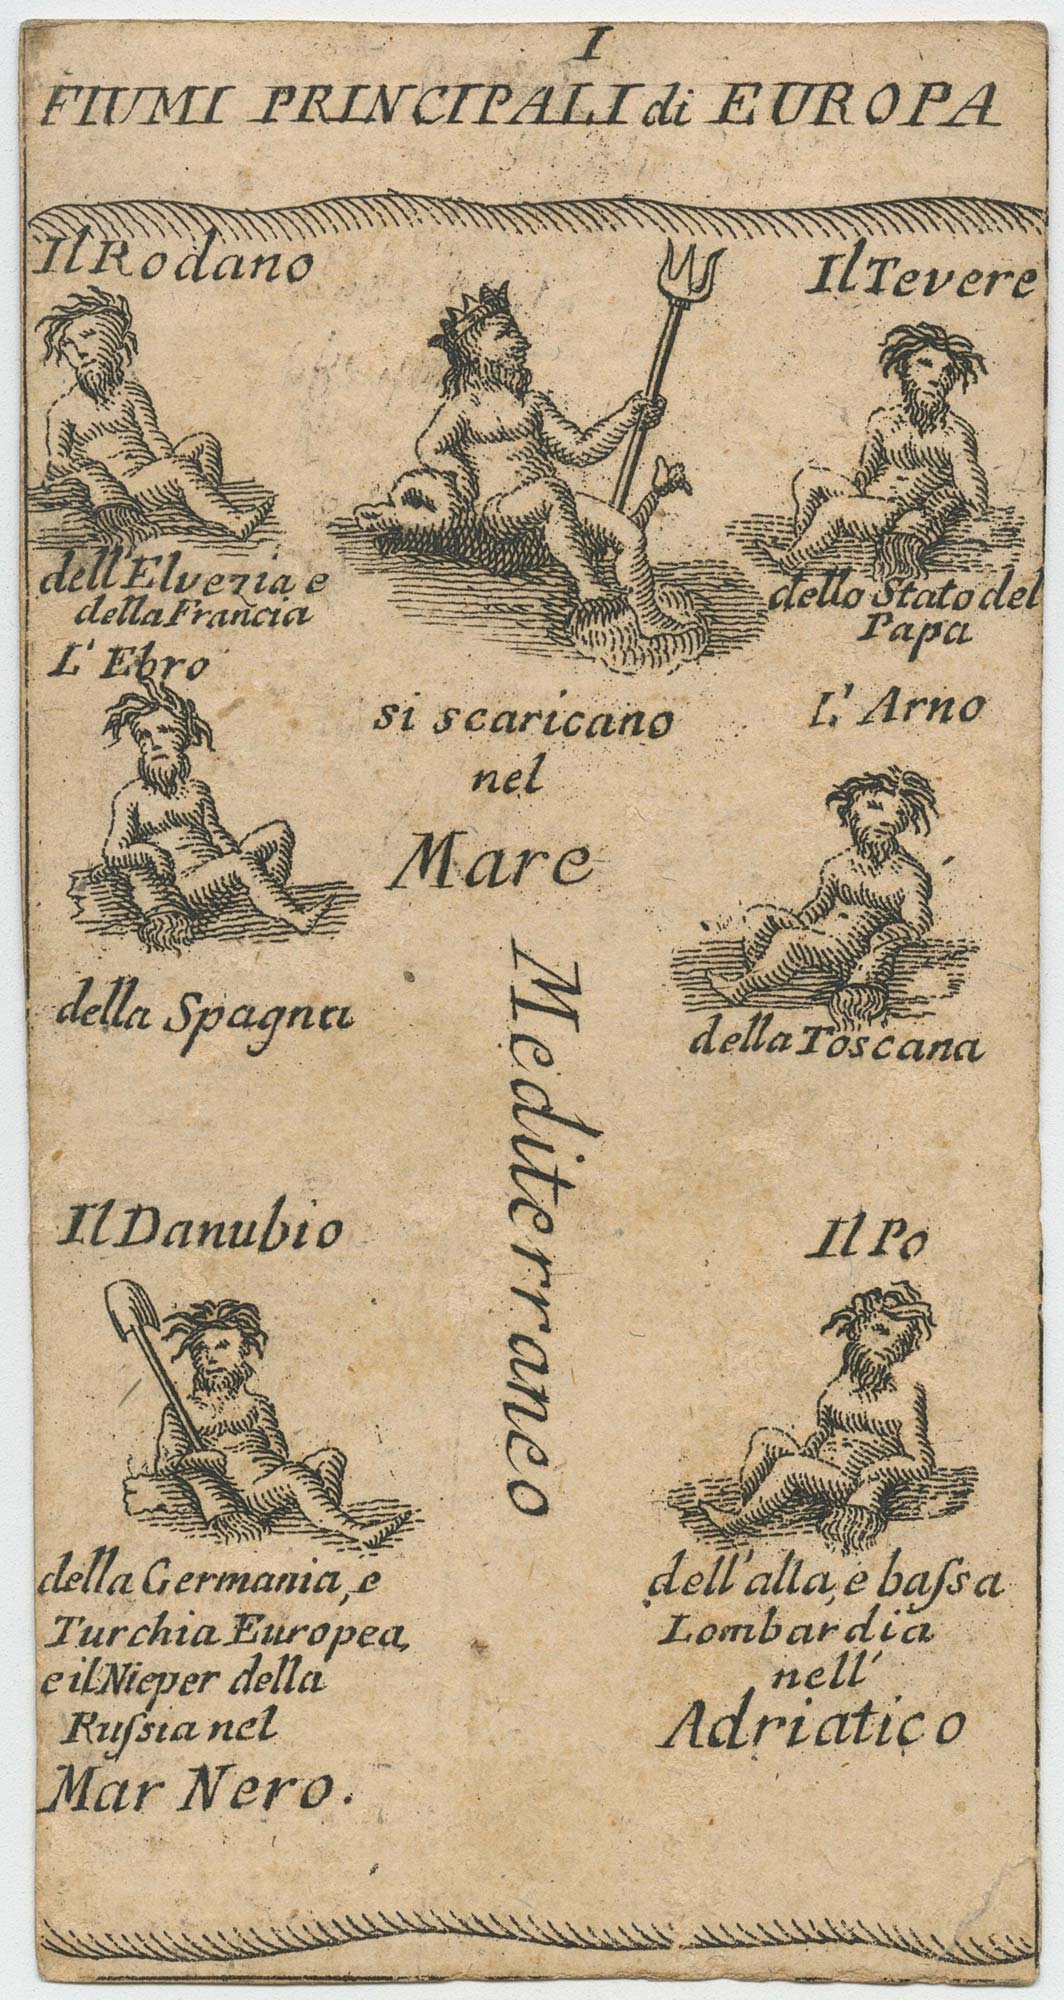 I
FIUMI PRINCIPALI di EUROPA
Il Rodano
dell'Elvezia, e
della Francia
L' Ebro
della Spagna
si scaricano
nel
Mare
Mediterraneo
Il Tevere
dello Stato del
Papa
L' Arno
della Toscana
Il Danubio
della Germania, e
Turchia Europea,
e il Nieper della
Ruſsia nel
Mar Nero.
Il Po
dell'alta, e baſsa
Lombardia
nell'
Adriatico